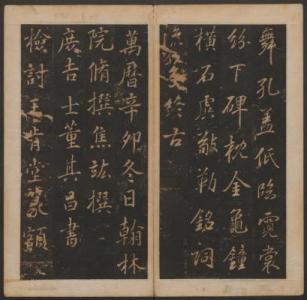 舞孔蓋低臨霓裳
紛下碑枕金龜鐘
橫石虡敬勒銘詞
終古
萬曆辛卯冬日翰林
院脩撰焦竑撰
庶吉士董其昌書
檢討王肯堂篆額